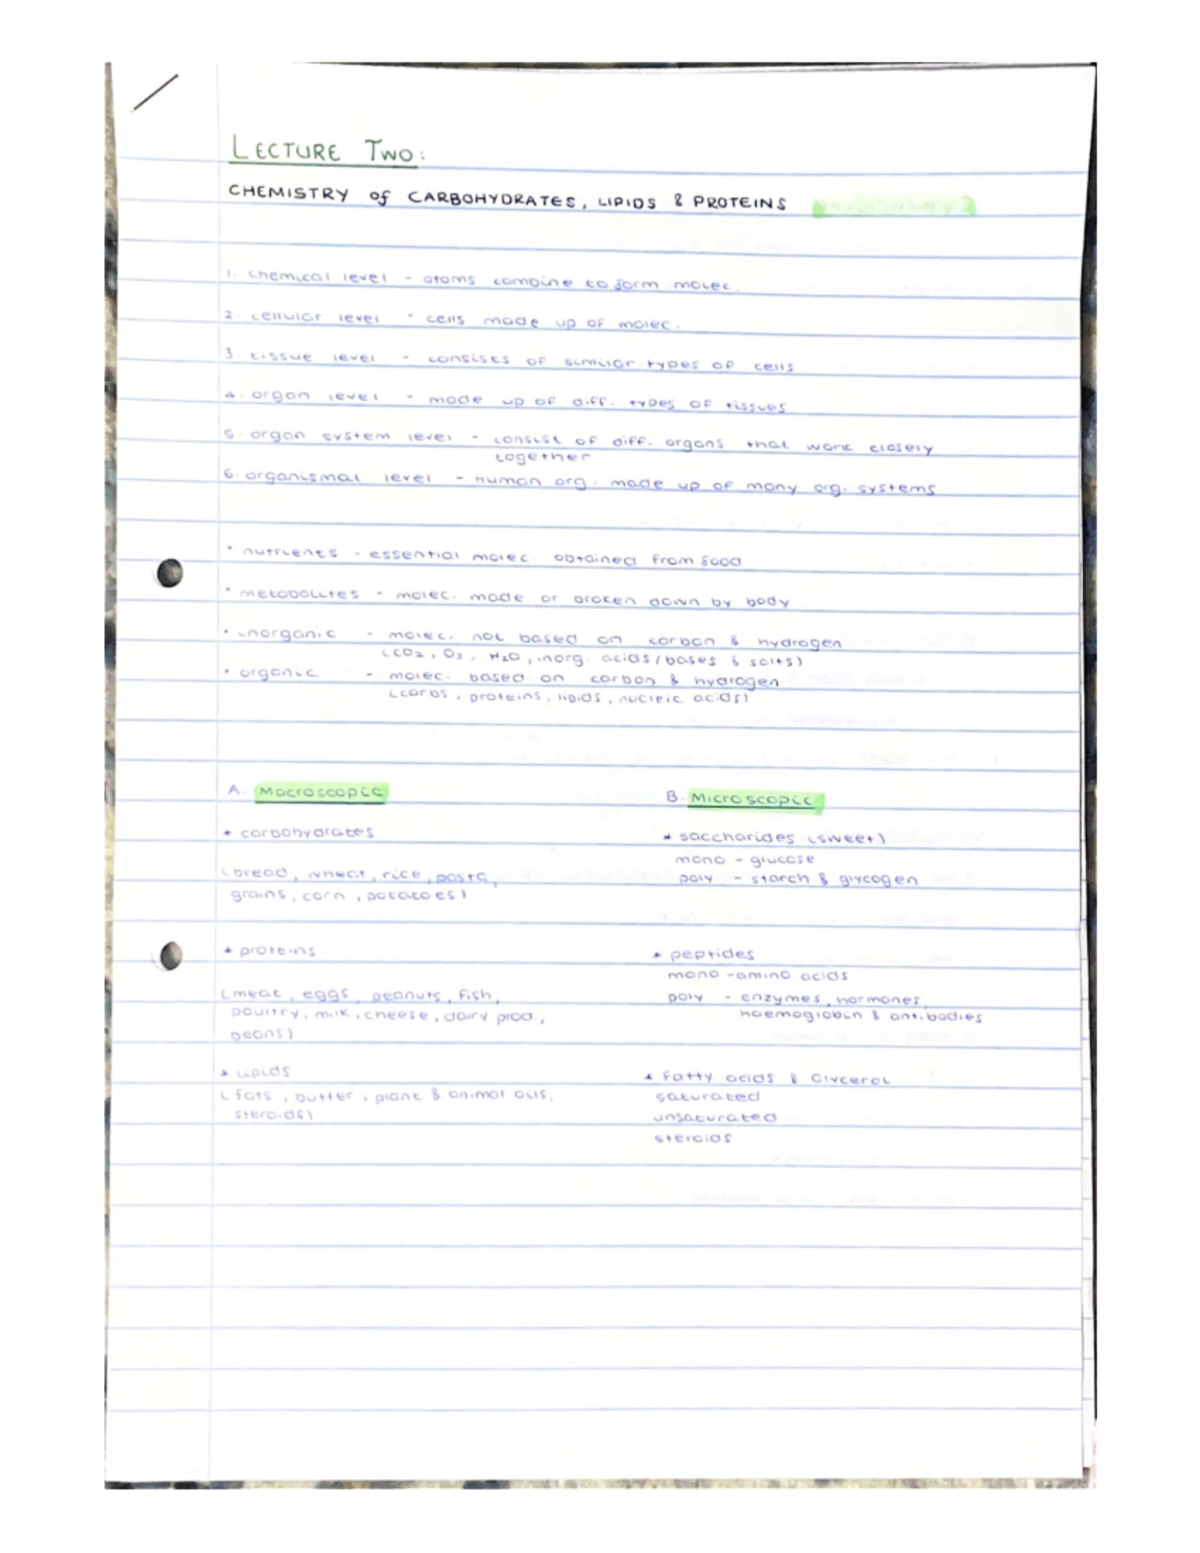 LECTURE TWO:
CHEMISTRY of CARBOHYDRATES, LIPIDS & PROTEINS
1. chemical level - atoms combine to form molec.
2. cellular level - cells made up of molec.
3. tissue level - consists of similar types of cells
4. organ level - made up of diff. types of tissues
5. organ system level - consist of diff. organs that work closely
together
6. organismal level - human org. made up of many org. systems
• nutrients - essential molec. obtained from food
• metabolites - molec. made or broken down by body
• inorganic - molec. not based on carbon & hydrogen
(CO2, O2, H2O, inorg. acids/bases & salts)
• organic - molec. based on carbon & hydrogen
(carbs, proteins, lipids, nucleic acids)
A. Macroscopic
* carbohydrates
(bread, wheat, rice, pasta,
grains, corn, potatoes)
* proteins
(meat, eggs, peanuts, fish,
poultry, milk, cheese, dairy prod.,
beans)
* lipids
(fats, butter, plant & animal oils,
steroids)
B. Microscopic
* saccharides (sweet)
mono - glucose
poly - starch & glycogen
* peptides
mono - amino acids
poly - enzymes, hormones,
haemoglobin & antibodies
* fatty acids & Glycerol
saturated
unsaturated
steroids